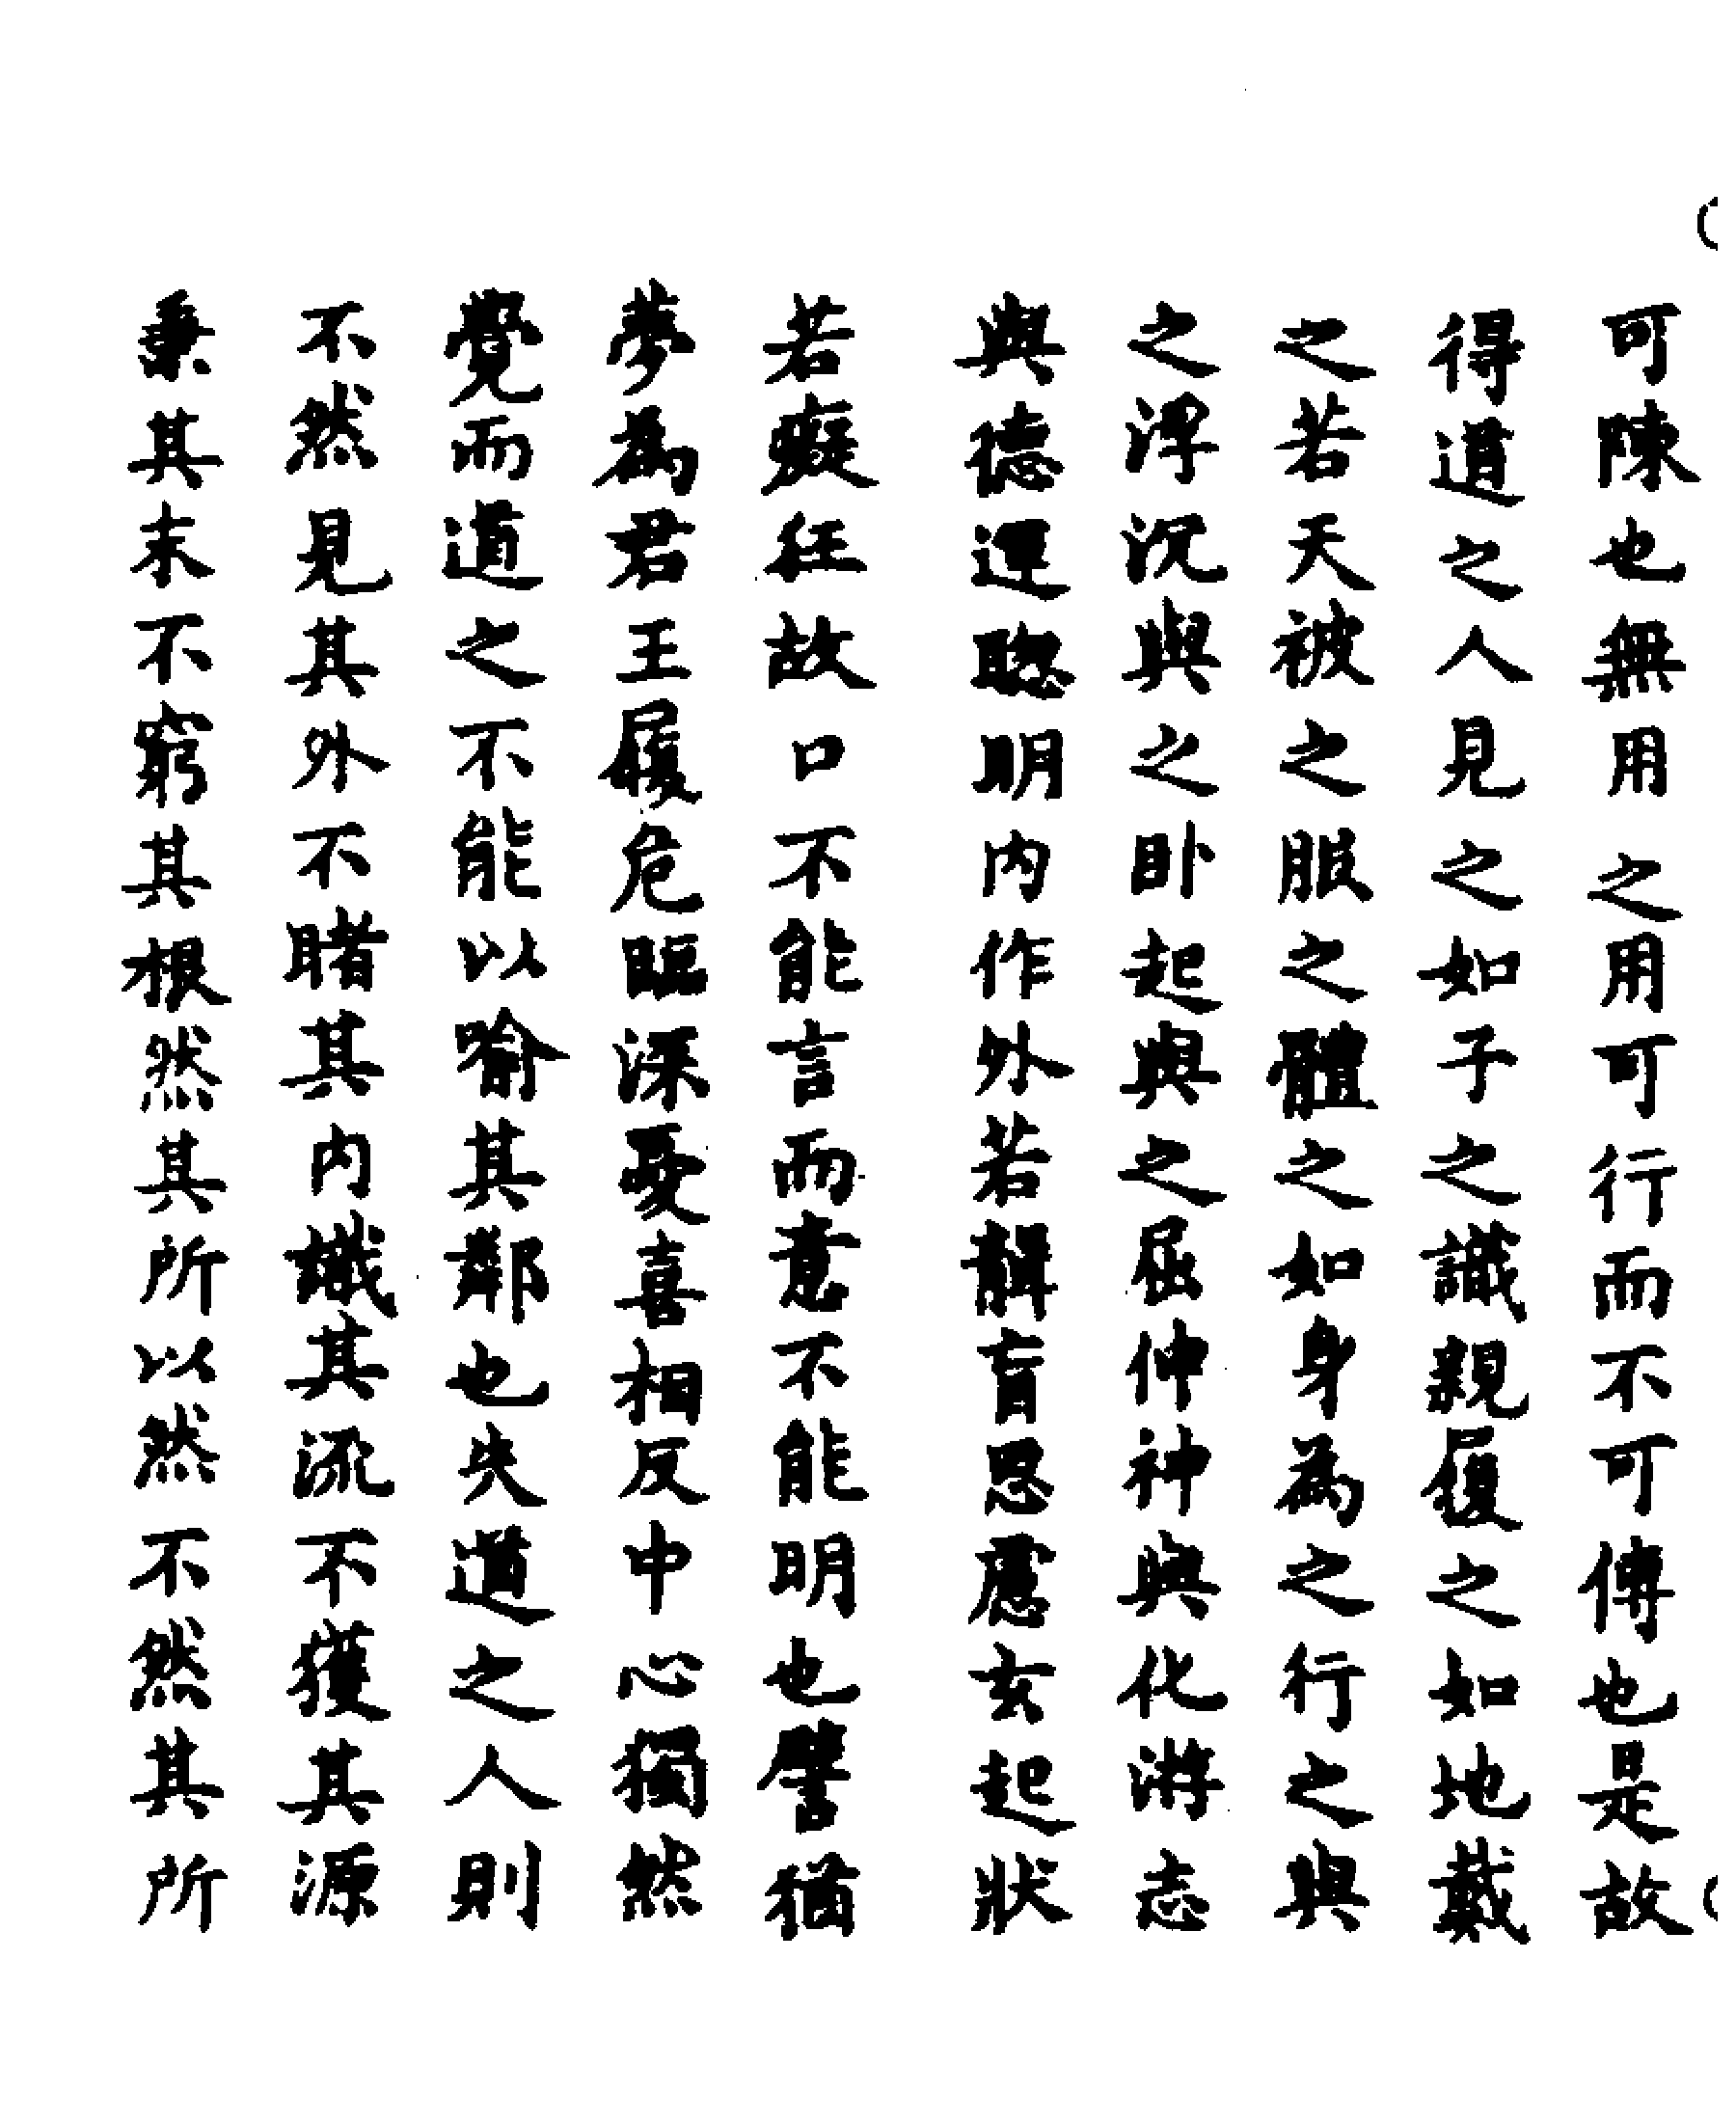 可陳也無用之用可行而不可傳也是故
得道之人見之如子之識親履之如地戴
之若天被之服之體之如身為之行之與
之浮沉與之卧起與之屈伸神與化游志
與德運聦明內作外若聾盲思慮玄起狀
若癡狂故口不能言而意不能明也譬猶
夢為君王履危臨深憂喜相反中心獨然
覺而道之不能以喻其鄰也失道之人則
不然見其外不睹其內識其流不獲其源
秉其末不窮其根然其所以然不然其所